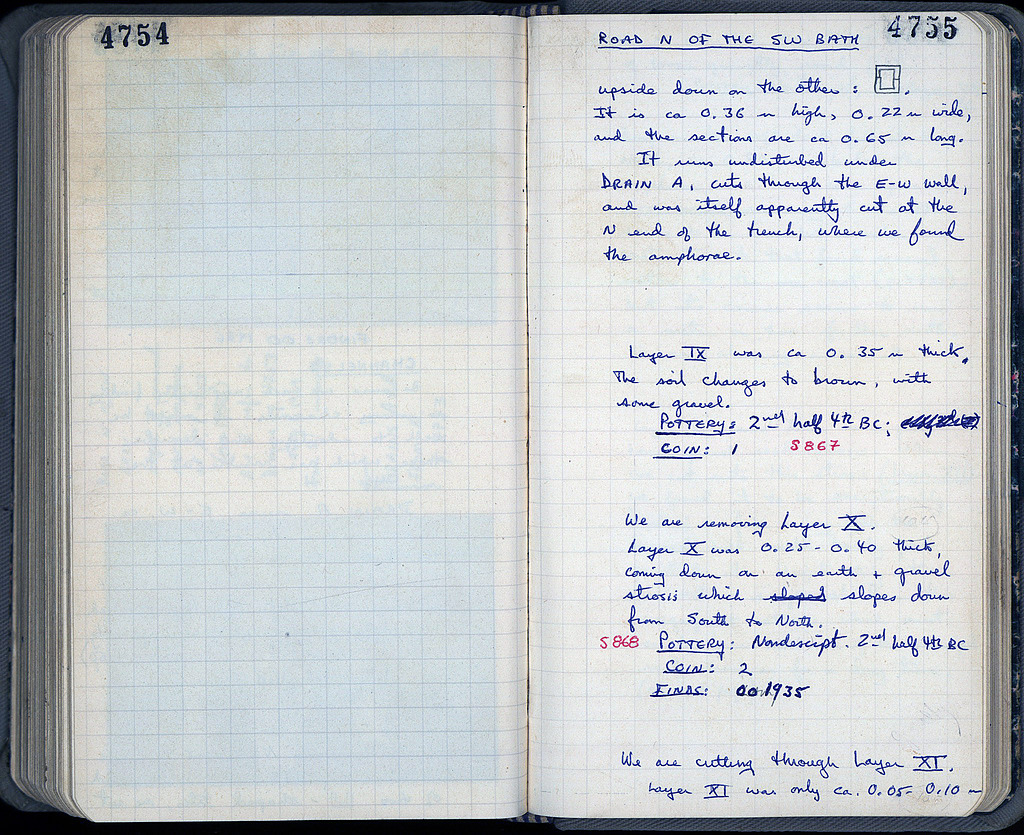 4754
4755
ROAD N OF THE SW BATH
upside down on the other : .
It is ca 0.36 m high, 0.22 m wide,
and the sections are ca 0.65 m long.
It runs undisturbed under
DRAIN A, cuts through the E-W wall,
and was itself apparently cut at the
N end of the trench, where we found
the amphorae.
Layer IX was ca 0.35 m thick.
The soil changes to brown, with
some gravel.
POTTERY: 2nd half 4th BC;
COIN: 1 S867
We are removing Layer X.
Layer X was 0.25 - 0.40 thick,
coming down on an earth + gravel
strosis which sloped slopes down
from South to North.
S868 POTTERY: Nondescript. 2nd half 4th BC
COIN: 2
FINDS: 001935
We are cutting through Layer XI.
Layer XI was only ca. 0.05 - 0.10 m